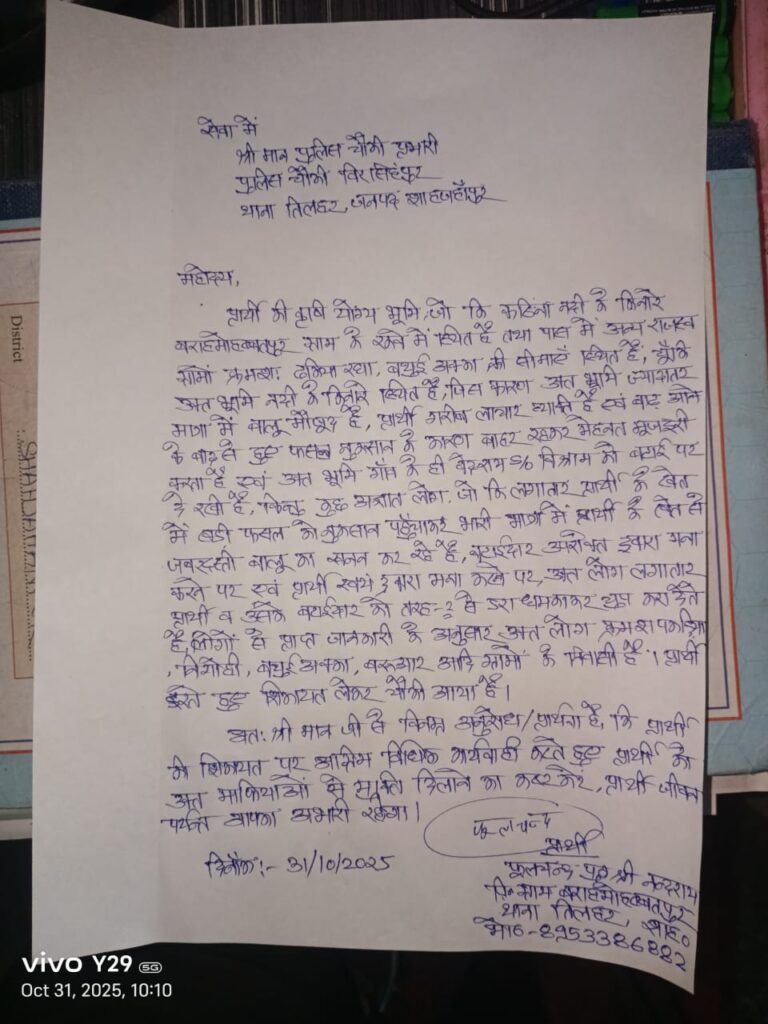 सेवा में
श्री मान पुलिस चौकी प्रभारी
पुलिस चौकी बिरसिंहपुर
थाना तिलहर, जनपद शाहजहाँपुर
महोदय,
प्रार्थी की कृषि योग्य भूमि, जो कि कठिना नदी के किनारे
बराहमोहब्बतपुर ग्राम के रास्ते में स्थित है तथा पास में अन्य राजस्व
ग्रामों क्रमशः ढकिया रघा, बथुई अक्का की सीमाऐं स्थित है, चूँकि
अत भूमि नदी के किनारे स्थित है, जिस कारण अत भूमि ज्यादातर
मात्रा में बालू मौजूद है, प्रार्थी गरीब लाचार व्यक्ति है एवं बाढ़ आने
के बाद से हुए फसल नुकसान के कारण बाहर रहकर मेहनत मजदूरी
करता है एवं अत भूमि गाँव के ही वेदराम S/o विश्राम को बयई पर
दे रखी है, किन्तु कुछ अज्ञात लोग, जो कि लगातार प्रार्थी के खेत
में बडी फसल को नुकसान पहुँचाकर भारी मात्रा में प्रार्थी के खेत से
जबरदस्ती बालू का खनन कर रहे है, द्वारा मना
करने पर एवं प्रार्थी स्वयं द्वारा मना करने पर, अत लोग लगातार
प्रार्थी व उसके बयईदार को तरह-2 से डरा धमकाकर चुप करा देते
है, लोगों से प्राप्त जानकारी के अनुसार अत लोग क्रमश
, बथुई अक्का, बरुआर आदि ग्रामों के निवासी है। प्रार्थी
डरते हुए शिकायत लेकर चौकी आया है।
अतः श्री मान जी से विनम्र अनुरोध/प्रार्थना है, कि प्रार्थी
की शिकायत पर अग्रिम विधिक कार्यवाही करते हुए प्रार्थी को
अत माफियाओं से मुक्ति दिलाने का कष्ट करें, प्रार्थी जीवन
पर्यन्त आपका अभारी रहेगा।
फूलचन्द
प्रार्थी
दिनाँकः- 31/10/2025
फूलचन्द पुत्र श्री नन्दराम
नि० ग्राम बराहमोहब्बतपुर
थाना तिलहर, शाह०
मो०- 8953386882
District
vivo Y29 5G
Oct 31, 2025, 10:10